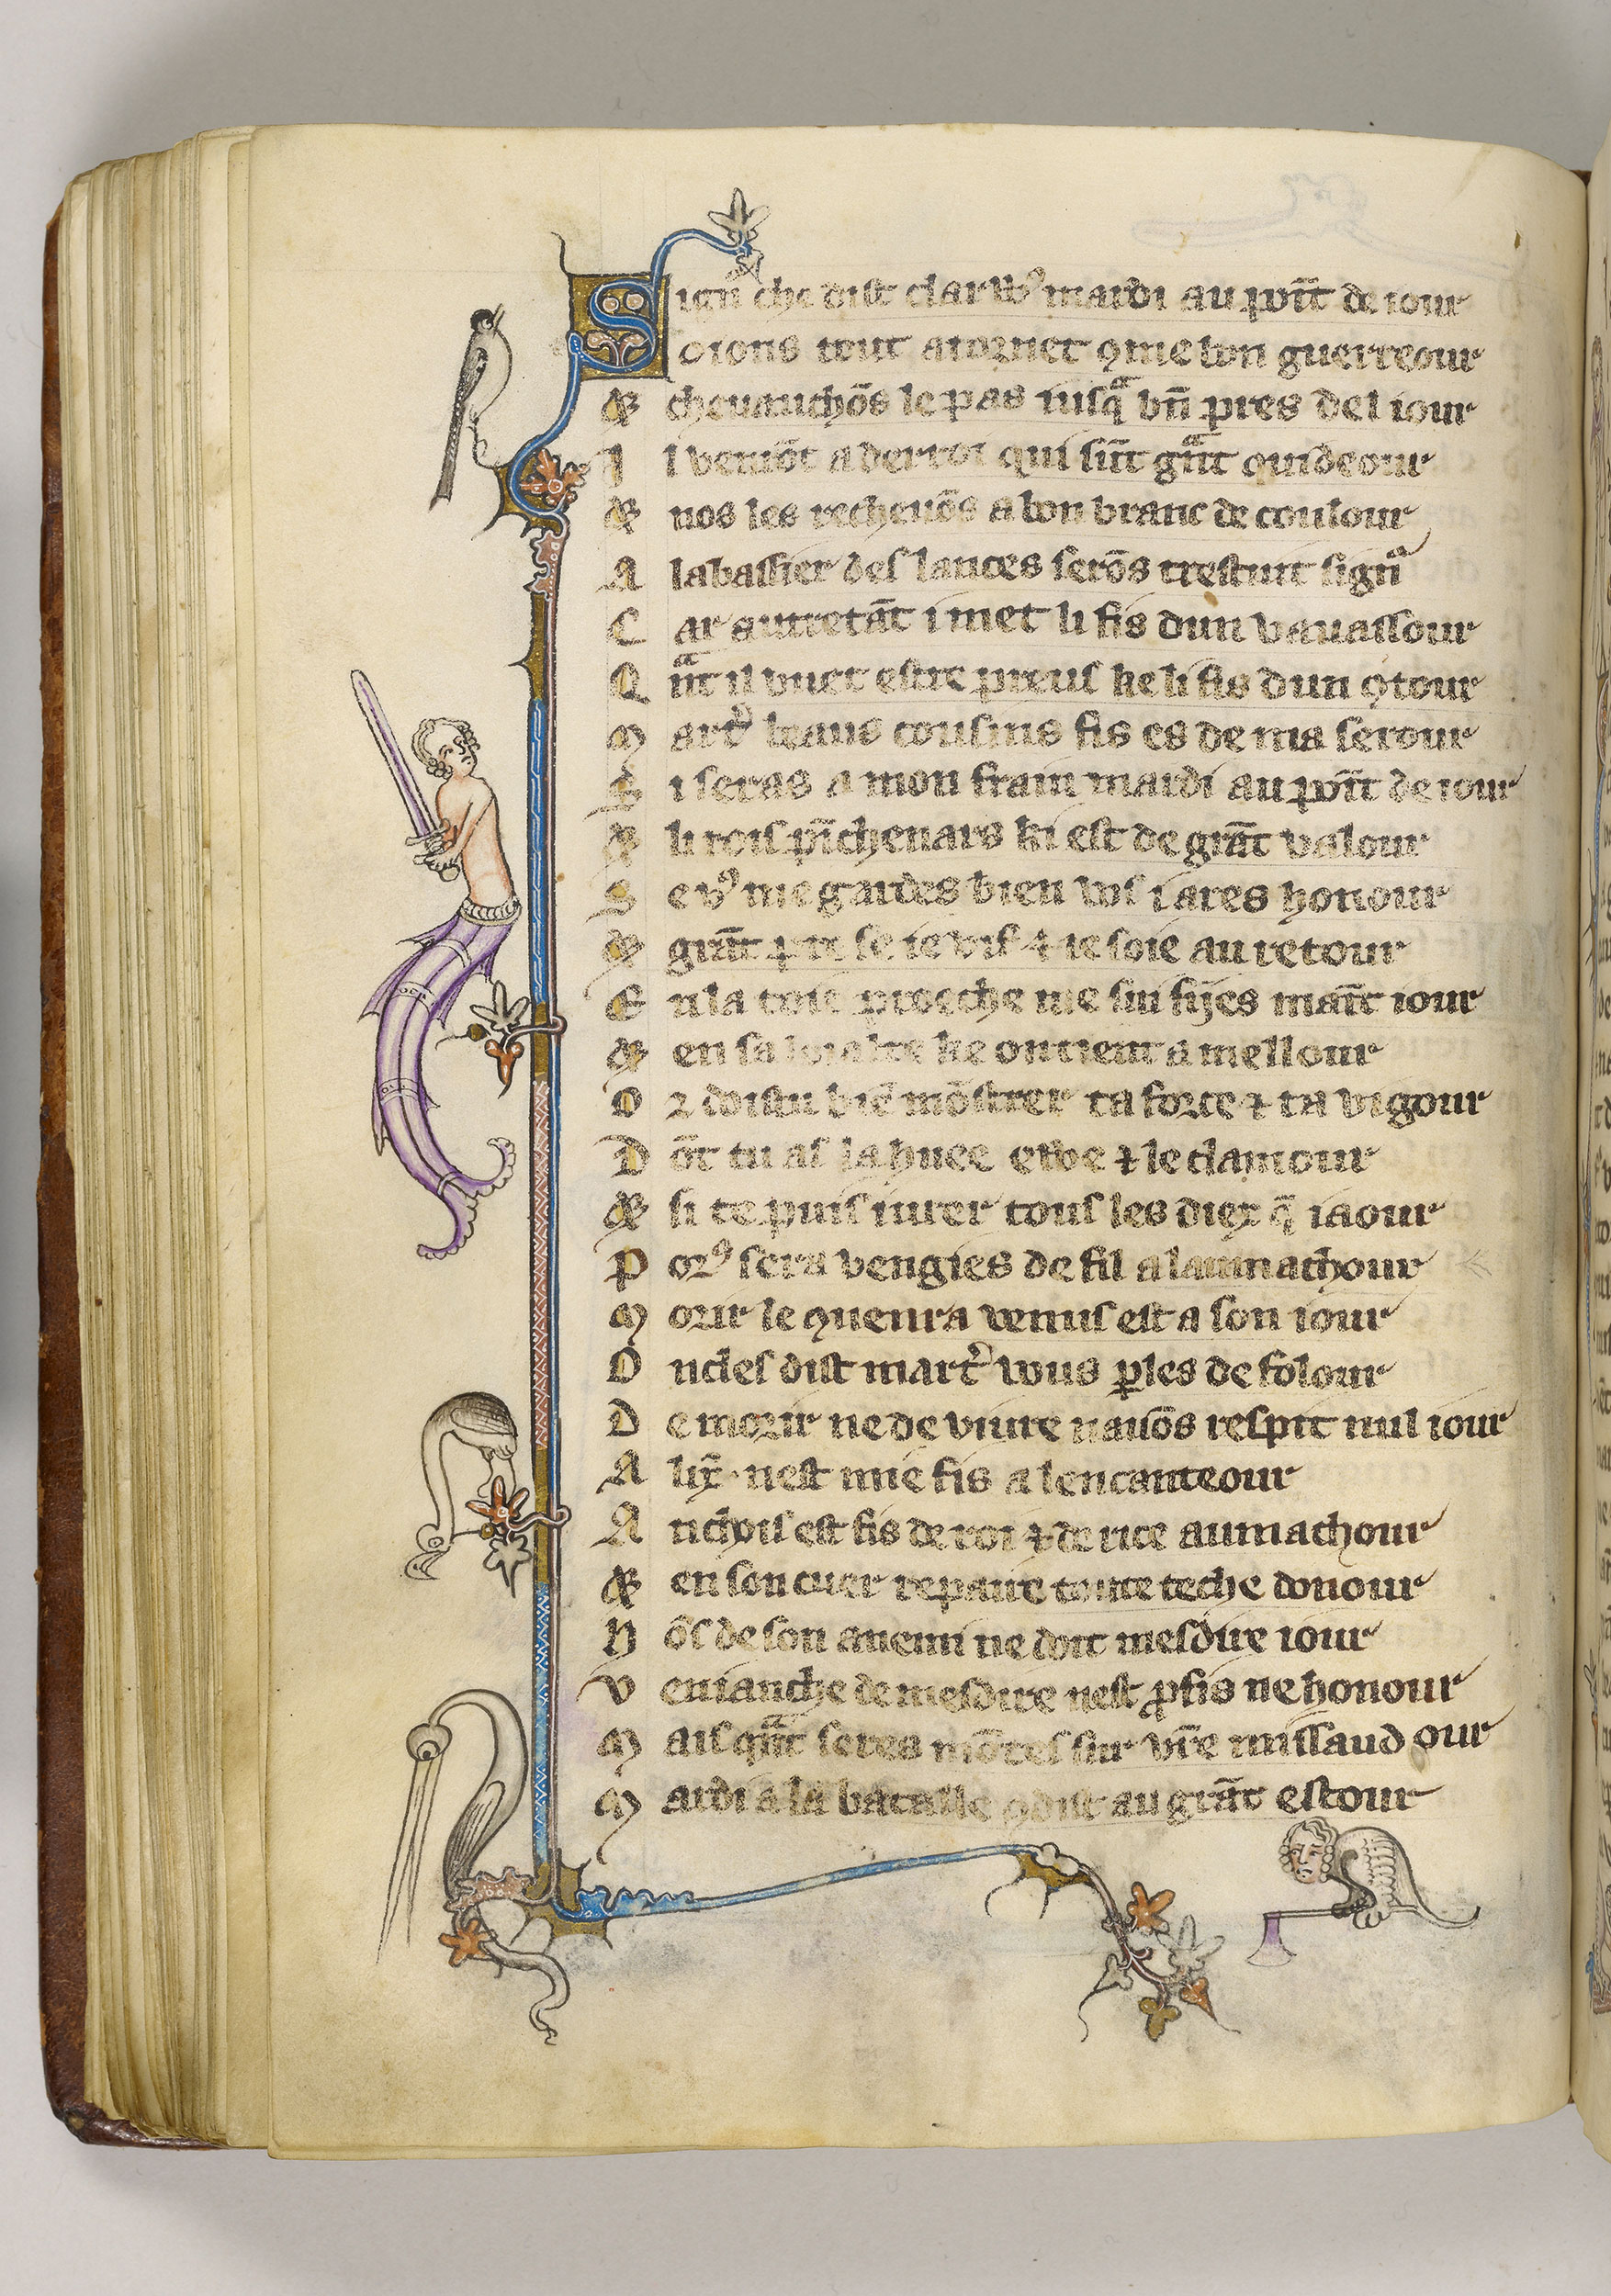 Sign̄ che dist clarvꝰ mardi au poīt de iour
Soions tout atornet ꝯme bon guerreour
& cheuauchōs le pas iusqᵃ bn̄ pres del iour
Il venrōt a derroi qui sūt gᵃnt quideour
& nos les recheuōs a bon branc de coulour
A labassier des lances serōs trestuit signᵒ
Car autretāt i met li fis dun vauassour
Qᵃnt il vuet estre preus ke li fis dun ꝯtour
Mart᾽ biaus cousins fis es de ma serour
Ti seras a mon frain mardi au poīt de iour
& li rois pīchenars ki est de grāt valour
Se vꝰ me gardes bien vos i ares honour
& grāt pre se ie vif ⁊ ie soie au retour
En la toie proeche me sui fijes maīt iour
& en sa loialte ke on tient a mellour
Or doistu biē mōstrer ta force ⁊ ta vigour
Dōt tu as la huee ⁊ le clamour
& si te puis iurer tous les diex q̄ iaour
Porꝰ sera vengies de fil a laumachour
Morir le ꝯuenra venus est a son iour
Oncles dist mart᾽ vous ꝑles de folour
De morir ne de viure nauōs respit nul iour
Alix̄· nest mie fis a lencanteour
Anchois est fis de roi ⁊ de rice aumachour
& en son cuer repaire toute teche donour
Nōs de son anemi ne doit mesdire iour
Venianche de mesdire nest ꝓfis ne honour
Mais qᵃnt seres mōtes sur vr̄e missaudour
Mardi a la bataille ꝯdist au grāt estour